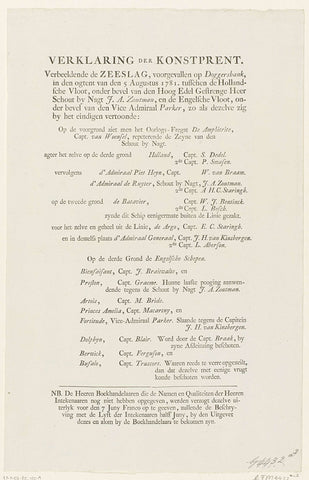 VERKLARING DER KONSTPRENT.
Verbeeldende de ZEESLAG, voorgevallen op Doggersbank,
in den ogtent van den 5 Augustus 1781. tusschen de Holland-
sche Vloot, onder bevel van den Hoog Edel Gestrenge Heer
Schout by Nagt J. A. Zoutman, en de Engelsche Vloot, on-
der bevel van den Vice Admiraal Parker, zo als dezelve zig
by het eindigen vertoonde:
Op de voorgrond siet men het Oorlogs-Fregat De Amphitrite,
Capt. van Woensel, repeterende de Zeyne van den
Schout by Nagt.
agter het zelve op de derde grond Holland, Capt. S. Dedel.
2de Capt. P. Smasen.
vervolgens d'Admiraal Piet Heyn, Capt. W. van Braam.
d'Admiraal de Ruyter, Schout by Nagt, J. A. Zoutman.
2de Capt. A H. C. Staringh.
op de tweede grond de Batavier, Capt. W. J. Bentinck.
2de Capt. L. Bosch.
zynde dit Schip eenigermate buiten de Linie gezakt.
voor het zelve en geheel uit de Linie, de Argo, Capt. E. C. Staringh.
en in deszelfs plaats d'Admiraal Generaal, Capt. J. H. van Kinsbergen.
2de Capt. L. Aberson.
Op de derde Grond de Engelsche Schepen.
Bienfaisant, Capt. J. Braitwaite, en
Preston, Capt. Graeme. Hunne laatste pooging aanwen-
dende tegens de Schout by Nagt J. A. Zoutman.
Artois, Capt. M. Bride.
Princes Amelia, Capt. Macartny, en
Fortitude, Vice-Admiraal Parker. Slaande tegens de Capitein
J. H. van Kinsbergen.
Dolphyn, Capt. Blair. Word door de Capt. Braak, by
zyne Afsleitaing beschoten.
Berwick, Capt. Ferguson, en
Bufalo, Capt. Truscore. Waren reeds te verre opgezeilt,
dan dat dezelve met eenige vrugt
konde beschoten worden.
NB. De Heeren Boekhandelaaren die de Namen en Qualiteiten der Heeren
Intekenaaren nog niet hebben opgegeven, werden verzogt dezelve ui-
terlyk voor den 7 Juny Franco op te geeven, zullende de Beschry-
ving met de Lyst der Intekenaaren half Juny, by den Uitgever
dezes en alom by de Boekhandelaars te bekomen zyn.